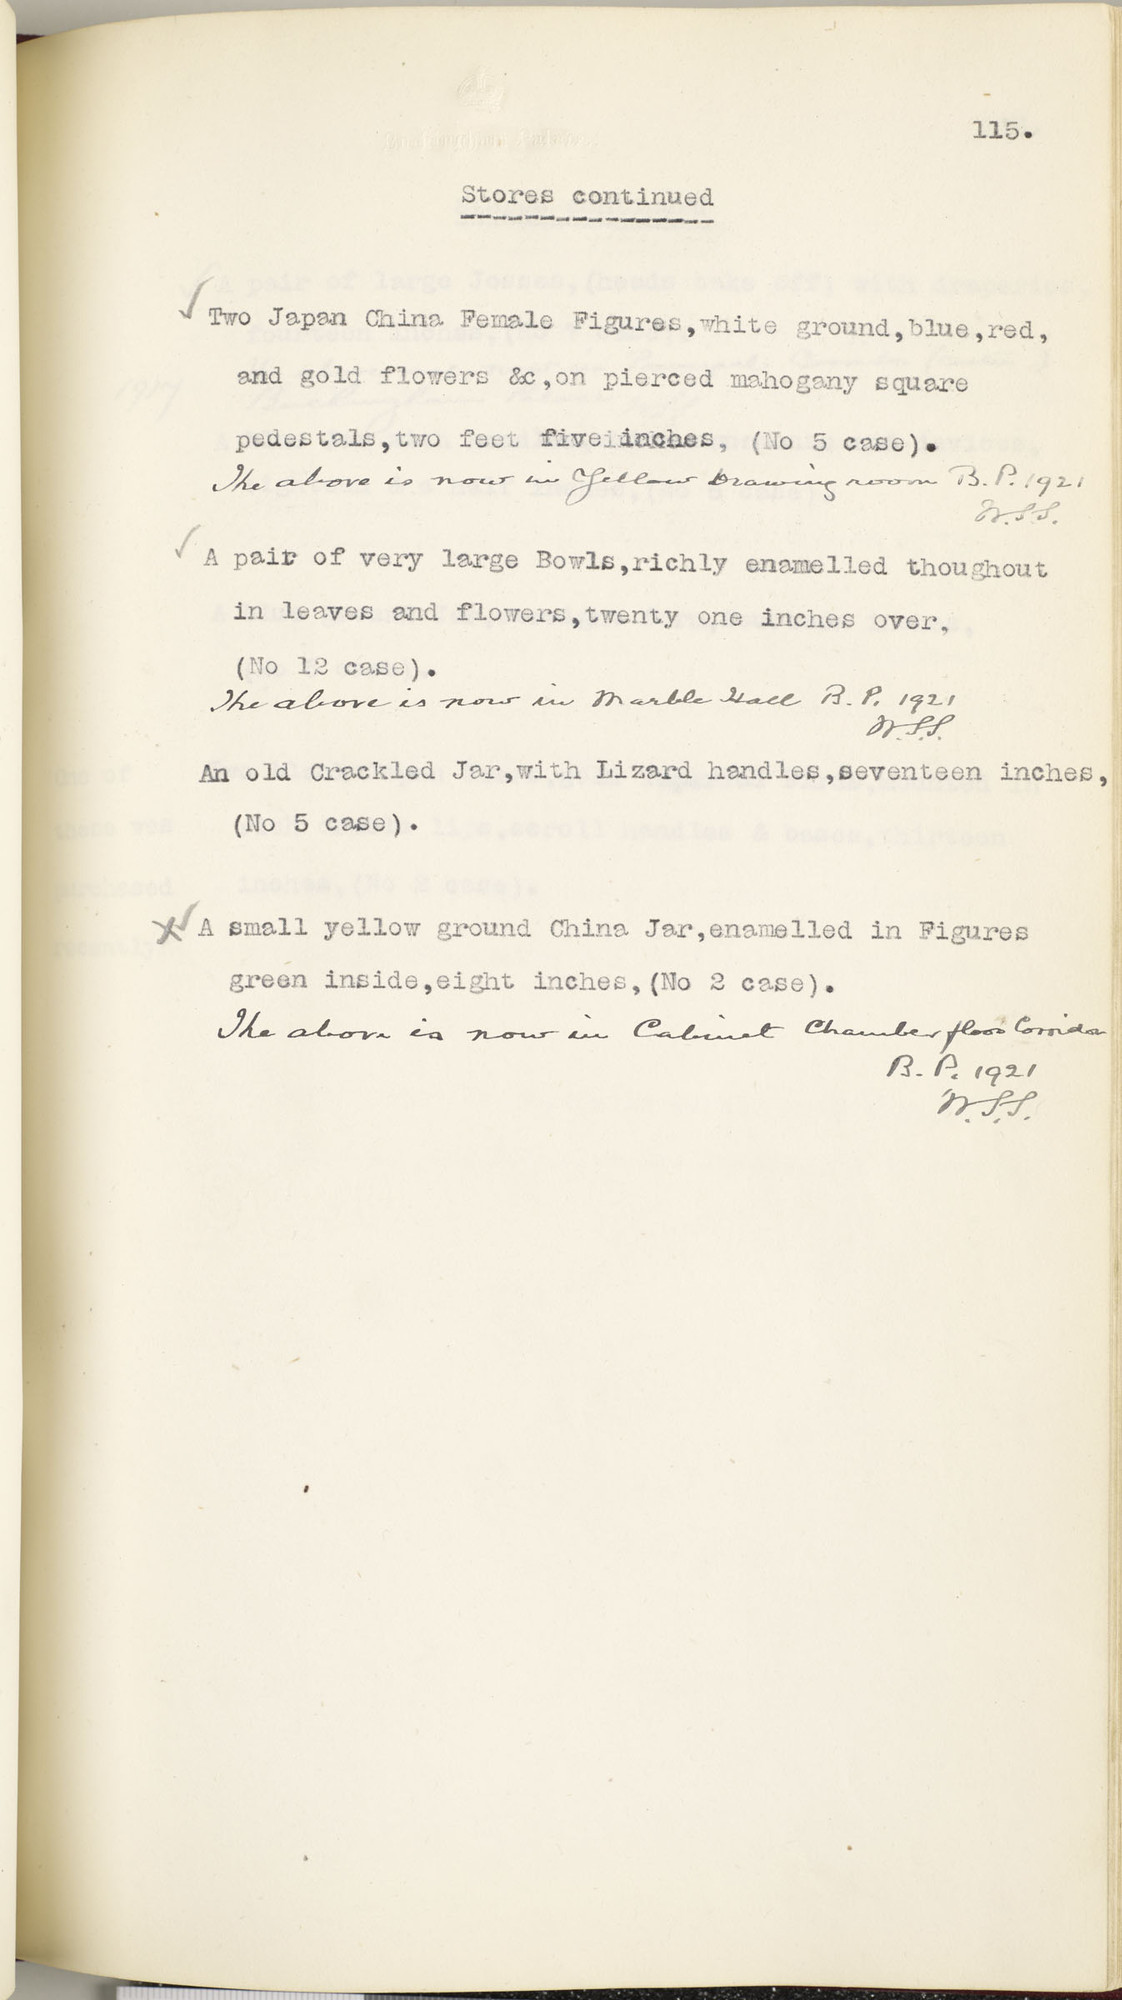 Buckingham Palace
115.
Stores continued
Two Japan China Female Figures,white ground,blue,red,
and gold flowers &c,on pierced mahogany square
pedestals,two feet five inches, (No 5 case).
The above is now in Yellow Drawing room B. P. 1921
W.S.S.
A pair of very large Bowls,richly enamelled thoughout
in leaves and flowers,twenty one inches over,
(No 12 case).
The above is now in Marble Hall B. P. 1921
W.S.S.
An old Crackled Jar,with Lizard handles,seventeen inches,
(No 5 case).
A small yellow ground China Jar,enamelled in Figures
green inside,eight inches,(No 2 case).
The above is now in Cabinet Chamber floor Corridor
B. P. 1921
W.S.S.